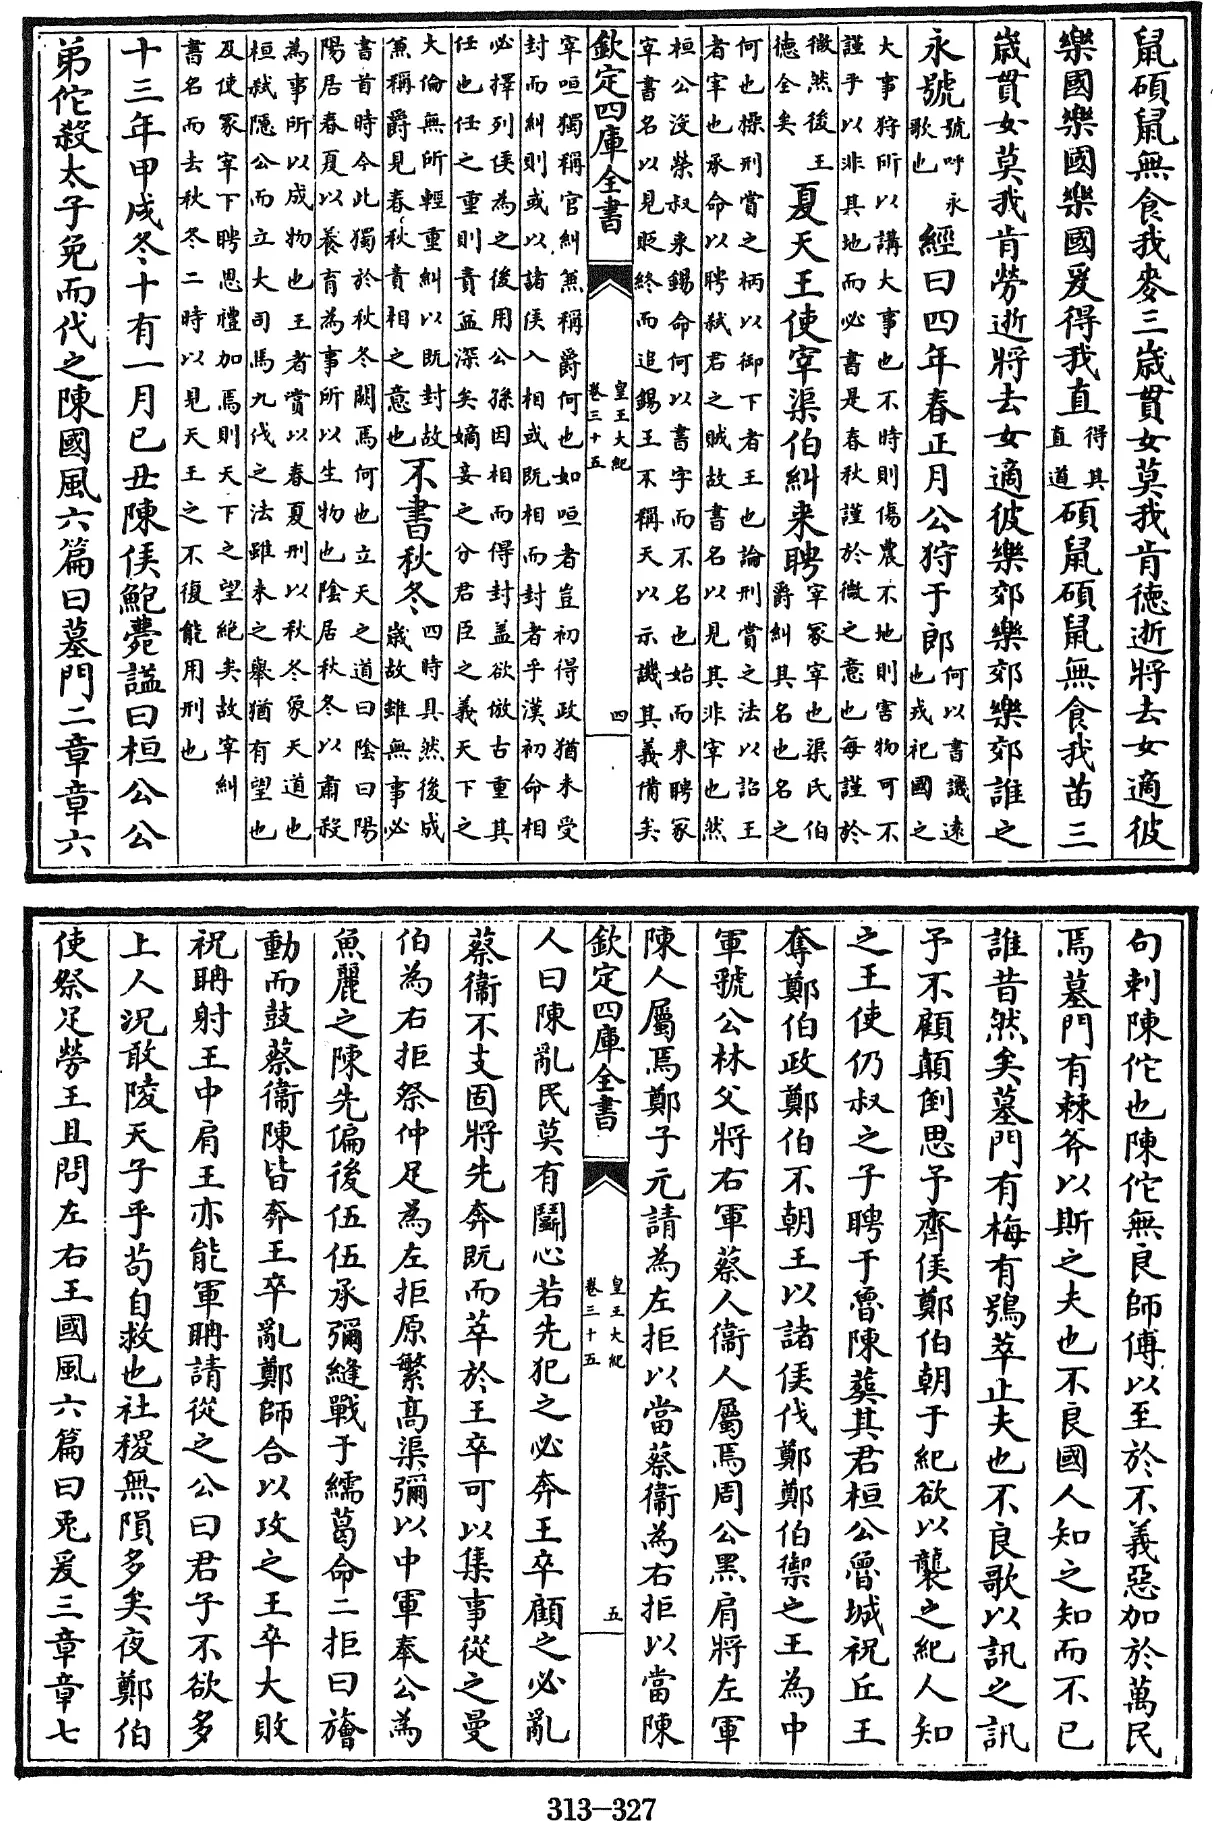 鼠碩鼠無食我麥三歲貫女莫我肯德逝將去女適彼
樂國樂國樂國爰得我直得其直道碩鼠碩鼠無食我苗三
歲貫女莫我肯勞逝將去女適彼樂郊樂郊樂郊誰之
永號號呼永歌也經曰四年春正月公狩于郎何以書譏遠也戎祀國之
大事狩所以講大事也不時則傷農不地則害物可不
謹乎以非其地而必書是春秋謹於微之意也每謹於
微然後王德全矣夏天王使宰渠伯糾来聘宰冢宰也渠氏伯爵糾其名也名之
何也操刑賞之柄以御下者王也論刑賞之法以詔王
者宰也承命以聘弑君之賊故書名以見其非宰也然
桓公沒榮叔来錫命何以書字而不名也始而来聘冢
宰書名以見貶終而追錫王不稱天以示譏其義備矣
欽定四庫全書
皇王大紀
卷三十五
四
宰咺獨稱官糾兼稱爵何也如咺者豈初得政猶未受
封而糾則或以諸侯入相或既相而封者乎漢初命相
必擇列侯為之後用公孫因相而得封盖欲倣古重其
任也任之重則責益深矣嫡妾之分君臣之義天下之
大倫無所輕重糾以既封故兼稱爵見春秋責相之意也不書秋冬四時具然後成歲故雖無事必
書首時今此獨於秋冬闕焉何也立天之道曰陰曰陽
陽居春夏以養育為事所以生物也陰居秋冬以肅殺
為事所以成物也王者賞以春夏刑以秋冬象天道也
桓弑隱公而立大司馬九伐之法雖未之舉猶有望也
及使冢宰下聘恩禮加焉則天下之望絶矣故宰糾
書名而去秋冬二時以見天王之不復能用刑也
十三年甲戌冬十有一月已丑陳侯鮑薨諡曰桓公公
弟佗殺太子免而代之陳國風六篇曰墓門二章章六
句刺陳佗也陳佗無良師傅以至於不義惡加於萬民
焉墓門有棘斧以斯之夫也不良國人知之知而不已
誰昔然矣墓門有梅有鴞萃止夫也不良歌以訊之訊
予不顧顛倒思予齊侯鄭伯朝于紀欲以襲之紀人知
之王使仍叔之子聘于魯陳葬其君桓公魯城祝丘王
奪鄭伯政鄭伯不朝王以諸侯伐鄭鄭伯禦之王為中
軍虢公林父將右軍蔡人衞人屬焉周公黑肩將左軍
陳人屬焉鄭子元請為左拒以當蔡衞為右拒以當陳
欽定四庫全書
皇王大紀
卷三十五
五
人曰陳亂民莫有鬬心若先犯之必奔王卒顧之必亂
蔡衞不支固將先奔既而萃於王卒可以集事從之曼
伯為右拒祭仲足為左拒原繁高渠彌以中軍奉公為
魚麗之陳先偏後伍伍承彌縫戰于繻葛命二拒曰旝
動而鼓蔡衞陳皆奔王卒亂鄭師合以攻之王卒大敗
祝聃射王中肩王亦能軍聃請從之公曰君子不欲多
上人況敢陵天子乎苟自救也社稷無隕多矣夜鄭伯
使祭足勞王且問左右王國風六篇曰兎爰三章章七
313-327